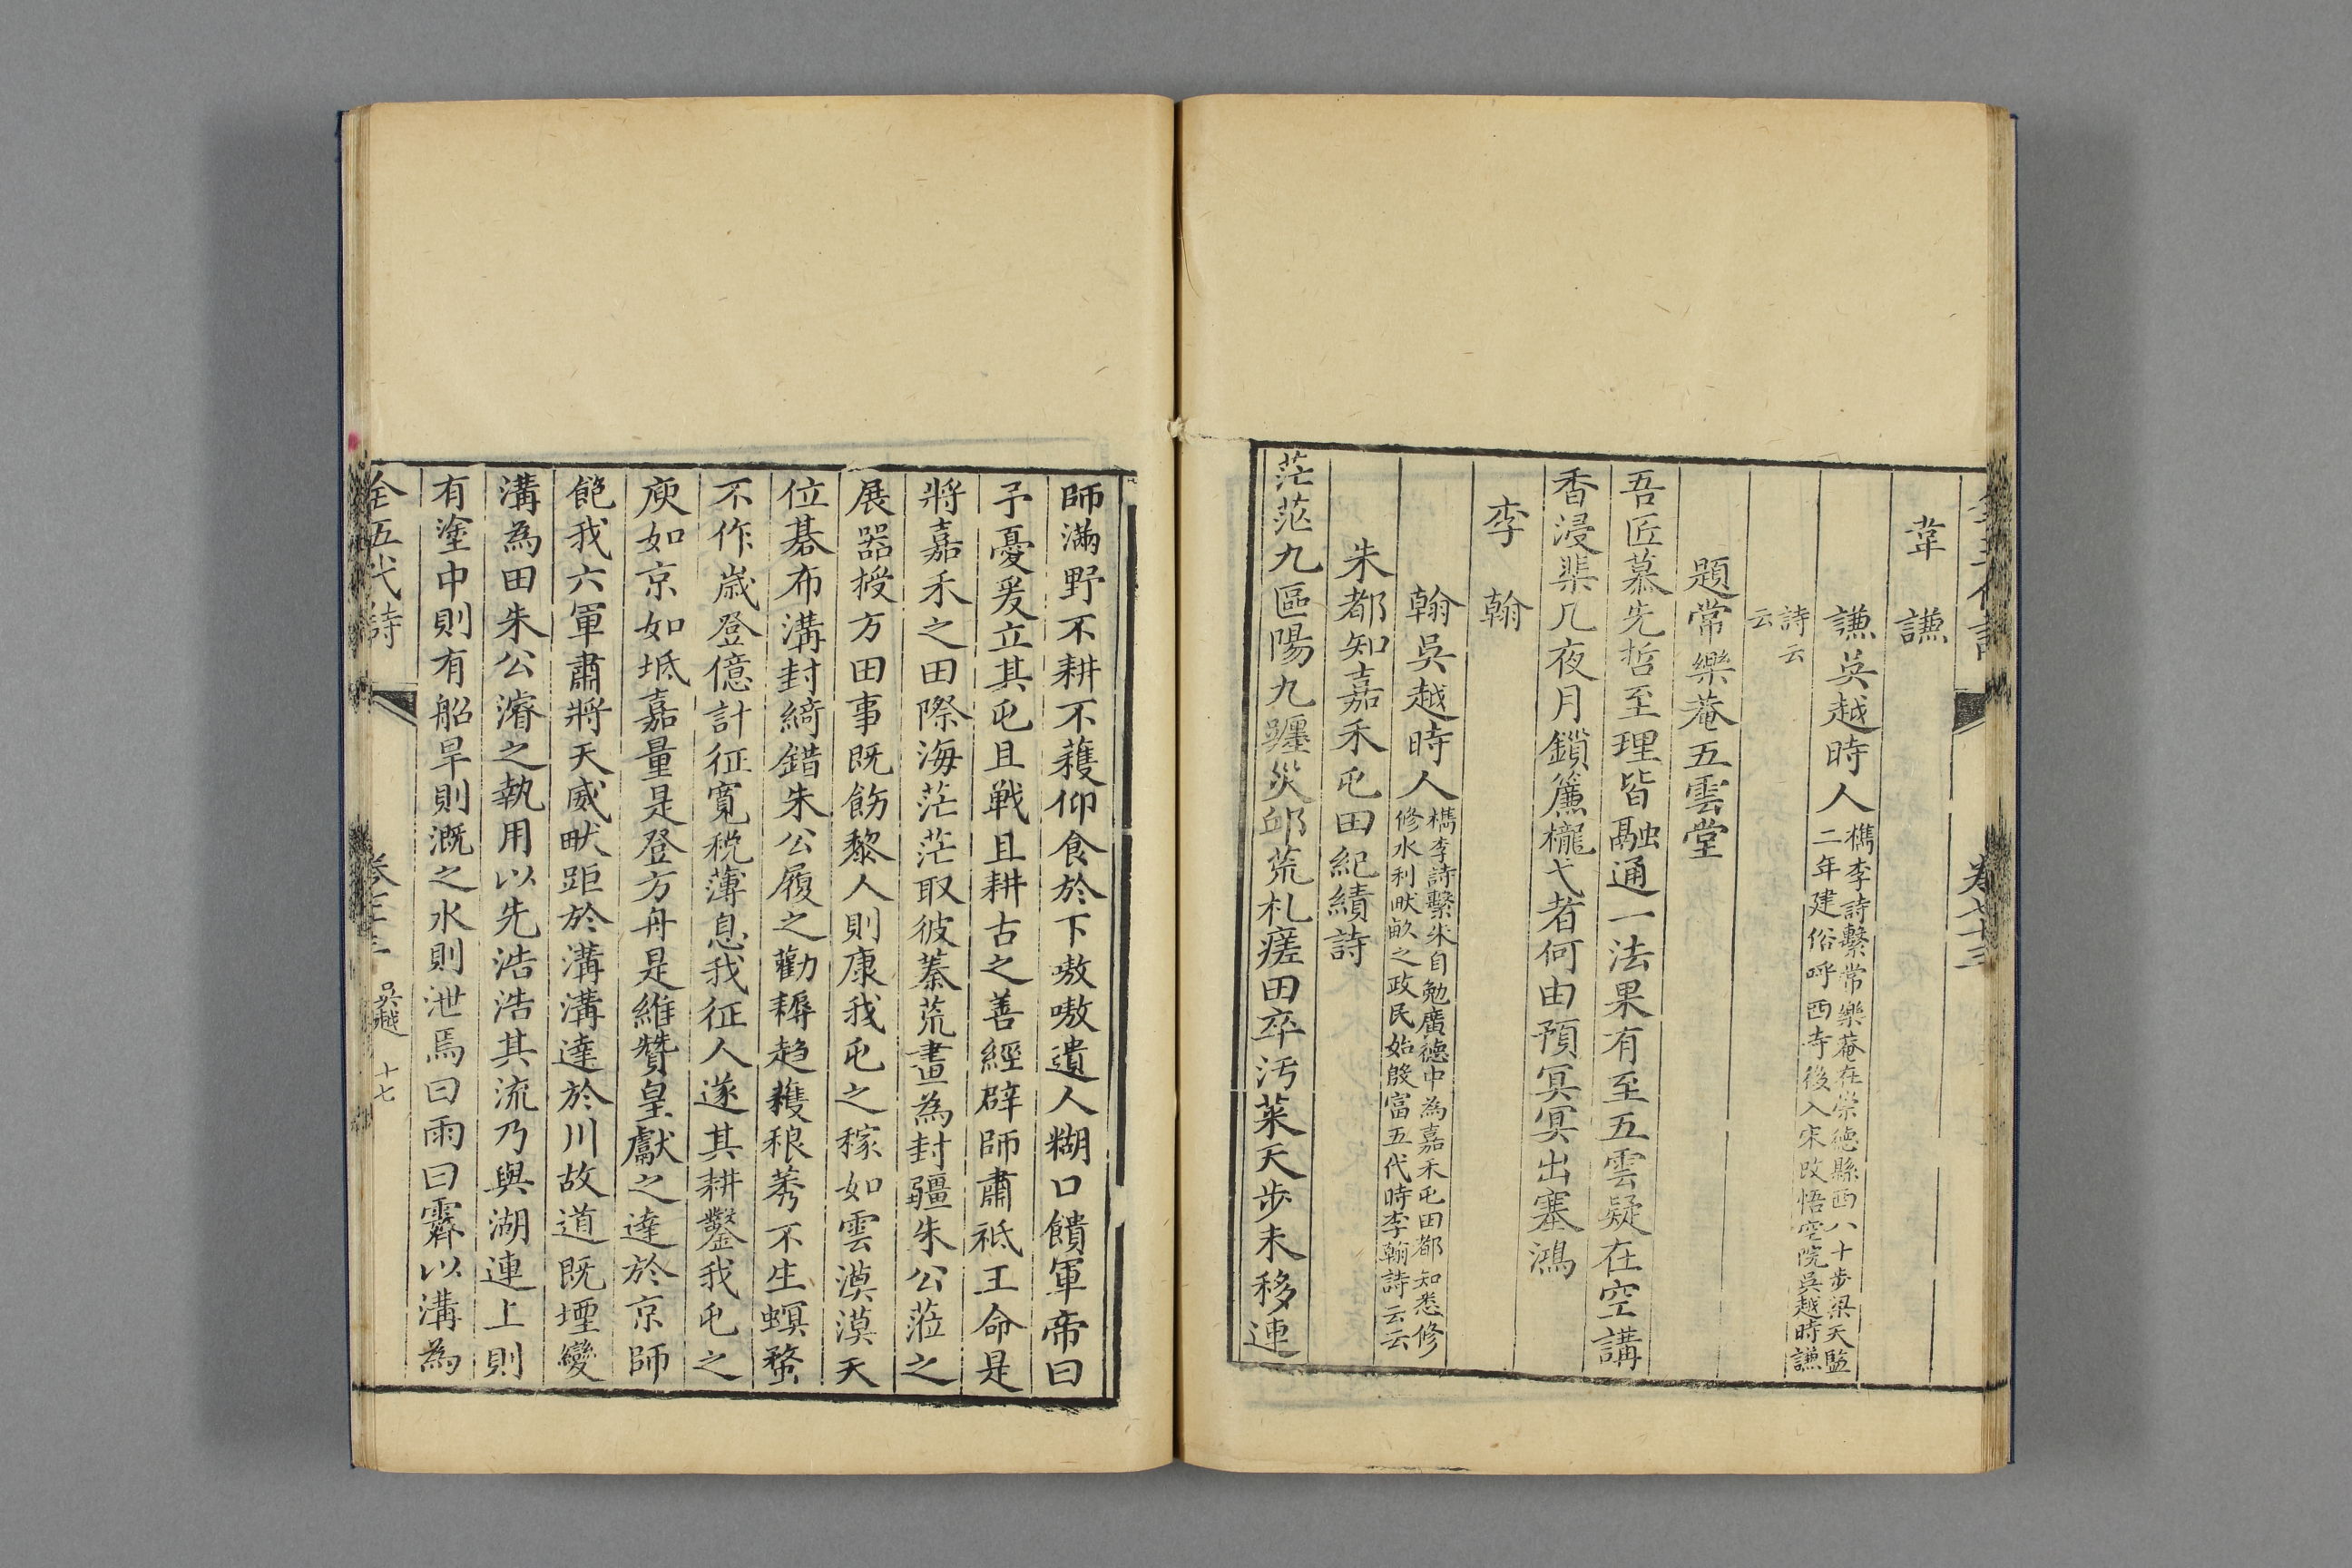 韋謙
謙吳越時人檇李詩繫常樂菴在崇德縣西八十步梁天監
二年建俗呼西寺後入宋改悟空院吳越時謙
詩云
云
題常樂菴五雲堂
吾匠慕先哲至理皆融通一法果有至五雲疑在空講
香浸棐几夜月鎖簾櫳弋者何由預冥冥出塞鴻
李翰
翰吳越時人檇李詩繫朱自勉廣德中為嘉禾屯田都知悉修
修水利畎畝之政民始殷富五代時李翰詩云云
朱都知嘉禾屯田紀績詩
茫茫九區陽九躔災邱荒札瘥田卒汚萊天步未移連
師滿野不耕不蓻仰食於下嗷嗷遺人糊口饋軍帝曰
予憂爰立其屯且戰且耕古之善經辟師肅祗王命是
將嘉禾之田際海茫茫取彼蓁荒畫為封疆朱公蒞之
展器授方田事既飭黎人則康我屯之稼如雲漠漠天
位碁布溝封綺錯朱公履之勸耨趋穫稂莠不生螟蝥
不作歲登億計征寬稅薄息我征人遂其耕鑿我屯之
庾如京如坻嘉量是登方舟是維贊皇獻之達於京師
飽我六軍肅將天威畎距於溝溝達於川故道既堙變
溝為田朱公濬之執用以先浩浩其流乃與湖連上則
有塗中則有船旱則溉之水則泄焉曰雨曰霽以溝為
全五代詩 吳越 十七